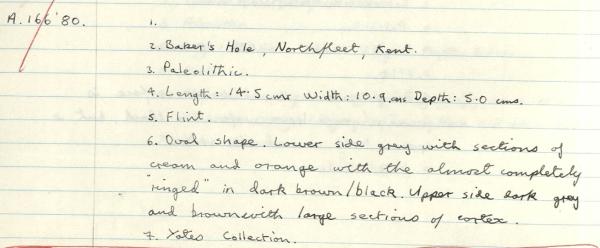 A.166'80.
1.
2. Baker's Hole, Northfleet, Kent.
3. Paleolithic.
4. Length: 14.5 cms Width: 10.9 cms Depth: 5.0 cms.
5. Flint.
6. Oval shape. Lower side grey with sections of
cream and orange with the almost completely
"ringed" in dark brown/black. Upper side dark grey
and brown with large sections of cortex.
7. Yates Collection.